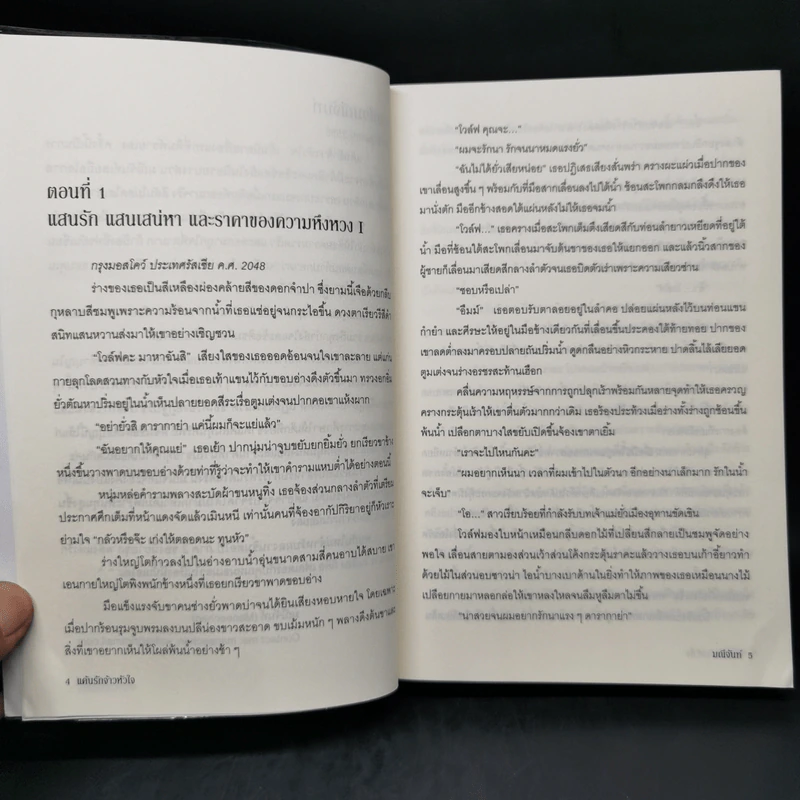 ตอนที่ 1
แสนรัก แสนเสน่หา และราคาของความหึงหวง I
กรุงมอสโคว์ ประเทศรัสเซีย ค.ศ. 2048
ร่างของเธอเป็นสีเหลืองผ่องคล้ายสีของดอกจำปา ซึ่งยามนี้เจือด้วยกลีบ
กุหลาบสีชมพูเพราะความร้อนจากน้ำที่เธอแช่อยู่จนกระไอขึ้น ดวงตาเรียวรีสีดำ
สนิทแสนหวานส่งมาให้เขาอย่างเชิญชวน
"โวล์ฟคะ มาหาฉันสิ" เสียงใสของเธอออดอ้อนจนใจเขาละลาย แต่แก่น
กายลุกโลดสวนทางกับหัวใจเมื่อเธอเท้าแขนไว้กับขอบอ่างดึงตัวขึ้นมา ทรวงอกอิ่ม
ยั่วตัณหาปริ่มอยู่ในน้ำเห็นปลายยอดสีระเรื่อตูมเต่งจนปากคอเขาแห้งผาก
"อย่ายั่วสิ ดารากาย่า แค่นี้ผมก็จะแย่แล้ว"
"ฉันอยากให้คุณแย่" เธอเย้า ปากนุ่มน่าจูบขยับยกยิ้มยั่ว ยกเรียวขาข้าง
หนึ่งขึ้นวางพาดบนขอบอ่างด้วยท่าที่รู้ว่าจะทำให้เขาคำรามแหบต่ำได้อย่างตอนนี้
หนุ่มหล่อคำรามพลางสะบัดผ้าขนหนูทิ้ง เธอจ้องส่วนกลางลำตัวที่เตรียม
ประกาศศึกเต็มที่หน้าแดงจัดแล้วเมินหนี เท่านั้นคนที่จ้องอากัปกิริยาอยู่ก็หัวเราะ
ย่ามใจ "กลัวหรือจ๊ะ เก่งให้ตลอดนะ ทูนหัว"
ร่างใหญ่โตก้าวลงไปในอ่างอาบน้ำอุ่นขนาดสามสี่คนอาบได้สบาย เขา
เอนกายใหญ่โตพิงพนักข้างหนึ่งที่เธอยกเรียวขาพาดขอบอ่าง
มือแข็งแรงจับขาคนช่างยั่วพาดบ่าจนได้ยินเสียงหอบหายใจ โดยเฉพาะ
เมื่อปากร้อนรุมจูบพรมลงบนปลีน่องขาวสะอาด ขบเม้มหนัก ๆ พลางดึงต้นขาและ
สิ่งที่เขาอยากเห็นให้โผล่พ้นน้ำอย่างช้า ๆ
4 แค้นรักจ้าวหัวใจ
"โวล์ฟ คุณจะ..."
"ผมจะรักนา รักจนนาหมดแรงยั่ว"
"ฉันไม่ได้ยั่วเสียหน่อย" เธอปฏิเสธเสียงสั่นพร่า ครางผะแผ่วเมื่อปากของ
เขาเลื่อนสูงขึ้น ๆ พร้อมกับที่มือสากเลื่อนลงไปใต้น้ำ ช้อนสะโพกกลมกลึงดึงให้เธอ
มานั่งตัก มืออีกข้างสอดใต้แผ่นหลังไม่ให้เธอจมน้ำ
"โวล์ฟ..." เธอครางเมื่อสะโพกเต็มตึงเสียดสีกับท่อนลำยาวเหยียดที่อยู่ใต้
น้ำ มือที่ช้อนใต้สะโพกเลื่อนมาจับต้นขาของเธอให้แยกออก และแล้วนิ้วสากของ
ผู้ชายก็เลื่อนมาเสียดสีกลางลำตัวจนเธอบิดตัวเร่าเพราะความเสียวซ่าน
"ชอบหรือเปล่า"
"อืมม์" เธอตอบรับตาลอยอยู่ในลำคอ ปล่อยแผ่นหลังไว้บนท่อนแขน
กำยำ และศีรษะให้อยู่ในมือข้างเดียวกันที่เลื่อนขึ้นประคองใต้ท้ายทอย ปากของ
เขาลดต่ำลงมาครอบปลายถันปริ่มน้ำ ดูดกลืนอย่างหิวกระหาย ปาดลิ้นไล้เลียยอด
ตูมเต่งจนร่างอรชรสะท้านเฮือก
คลื่นความหฤหรรษ์จากการถูกปลุกเร้าพร้อมกันหลายจุดทำให้เธอครวญ
ครางกระตุ้นเร้าให้เขาตื่นตัวมากกว่าเดิม เธอร้องประท้วงเมื่อร่างทั้งร่างถูกช้อนขึ้น
พ้นน้ำ เปลือกตาบางใสขยับเปิดขึ้นจ้องเขาตาเยิ้ม
"เราจะไปไหนกันคะ"
"ผมอยากเห็นนา เวลาที่ผมเข้าไปในตัวนา อีกอย่างนาเล็กมาก รักในน้ำ
จะเจ็บ"
"โอ..." สาวเรียบร้อยที่กำลังรับบทเจ้าแม่ยั่วเมืองอุทานขัดเขิน
โวล์ฟมองใบหน้าเหมือนกลีบดอกไม้ที่เปลี่ยนสีกลายเป็นชมพูจัดอย่าง
พอใจ เลื่อนสายตามองส่วนเว้าส่วนโค้งกระตุ้นราคะแล้ววางเธอบนเก้าอี้ยาวทำ
ด้วยไม้ในส่วนอบซาวน่า ไอน้ำบางเบาด้านในยิ่งทำให้ภาพของเธอเหมือนนางไม้
เปลือยกายมาหลอกล่อให้เขาหลงใหลจนลืมหูลืมตาไม่ขึ้น
"นาสวยจนผมอยากรักนาแรง ๆ ดารากาย่า"
มณีจันท์ 5